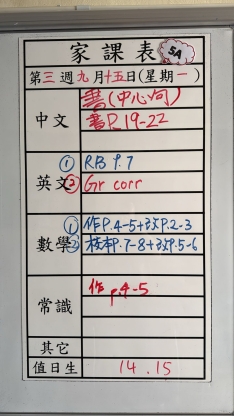 家課表 5A
第三週九月十五日(星期一)
中文
書(中心句)
書P.19-22
英文
① R.B P.7
② Gr corr
數學
① 作P.4-5+3文P.2-3
② 校本P.7-8+3文P.5-6
常識
作P.4-5
其它
值日生 14.15